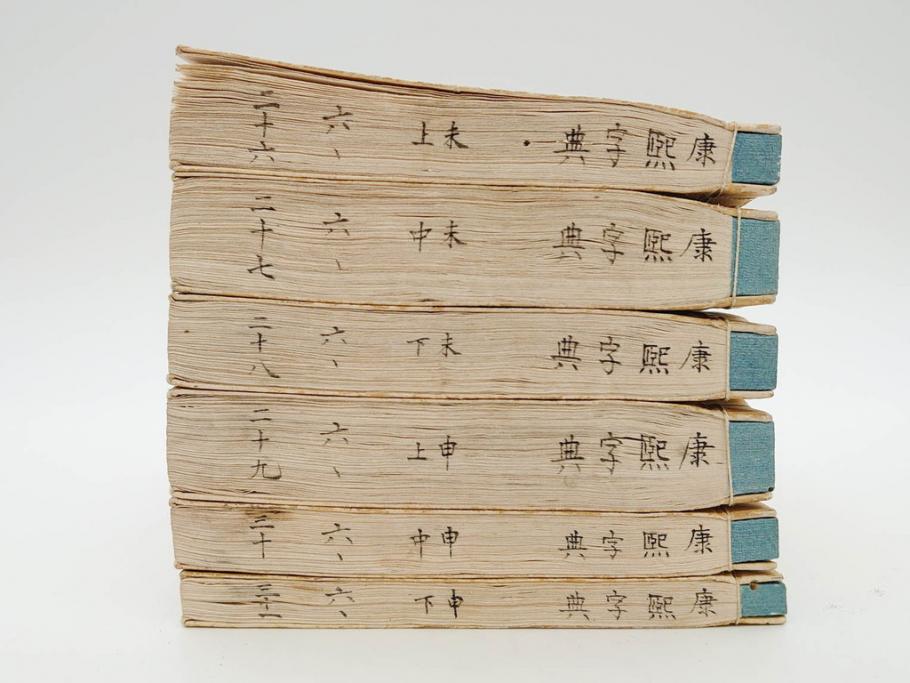 康熙字典 未上 六、 二十六
康熙字典 未中 六、 二十七
康熙字典 未下 六、 二十八
康熙字典 申上 六、 二十九
康熙字典 申中 六、 三十
康熙字典 申下 六、 三十一